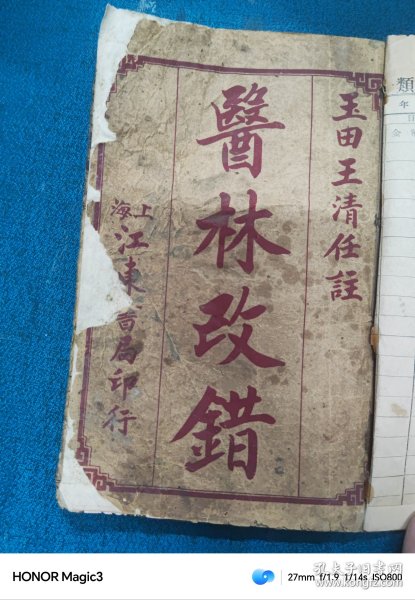 玉田王清任註
醫林改錯
上海
江東書局印行
類
年
HONOR Magic3
27mm f/1.9 1/14s ISO800
孔夫子旧书网